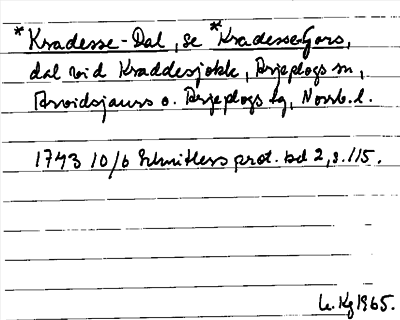 *Kradesse-Dal, se *Kradesse-Gors,
dal vid Kraddesjokk, Arjeplogs sn,
Arvidsjaurs o. Arjeplogs tg, Norrb. l.
1743 10/6 Schnitlers prot. bd 2, s. 115.
1965.